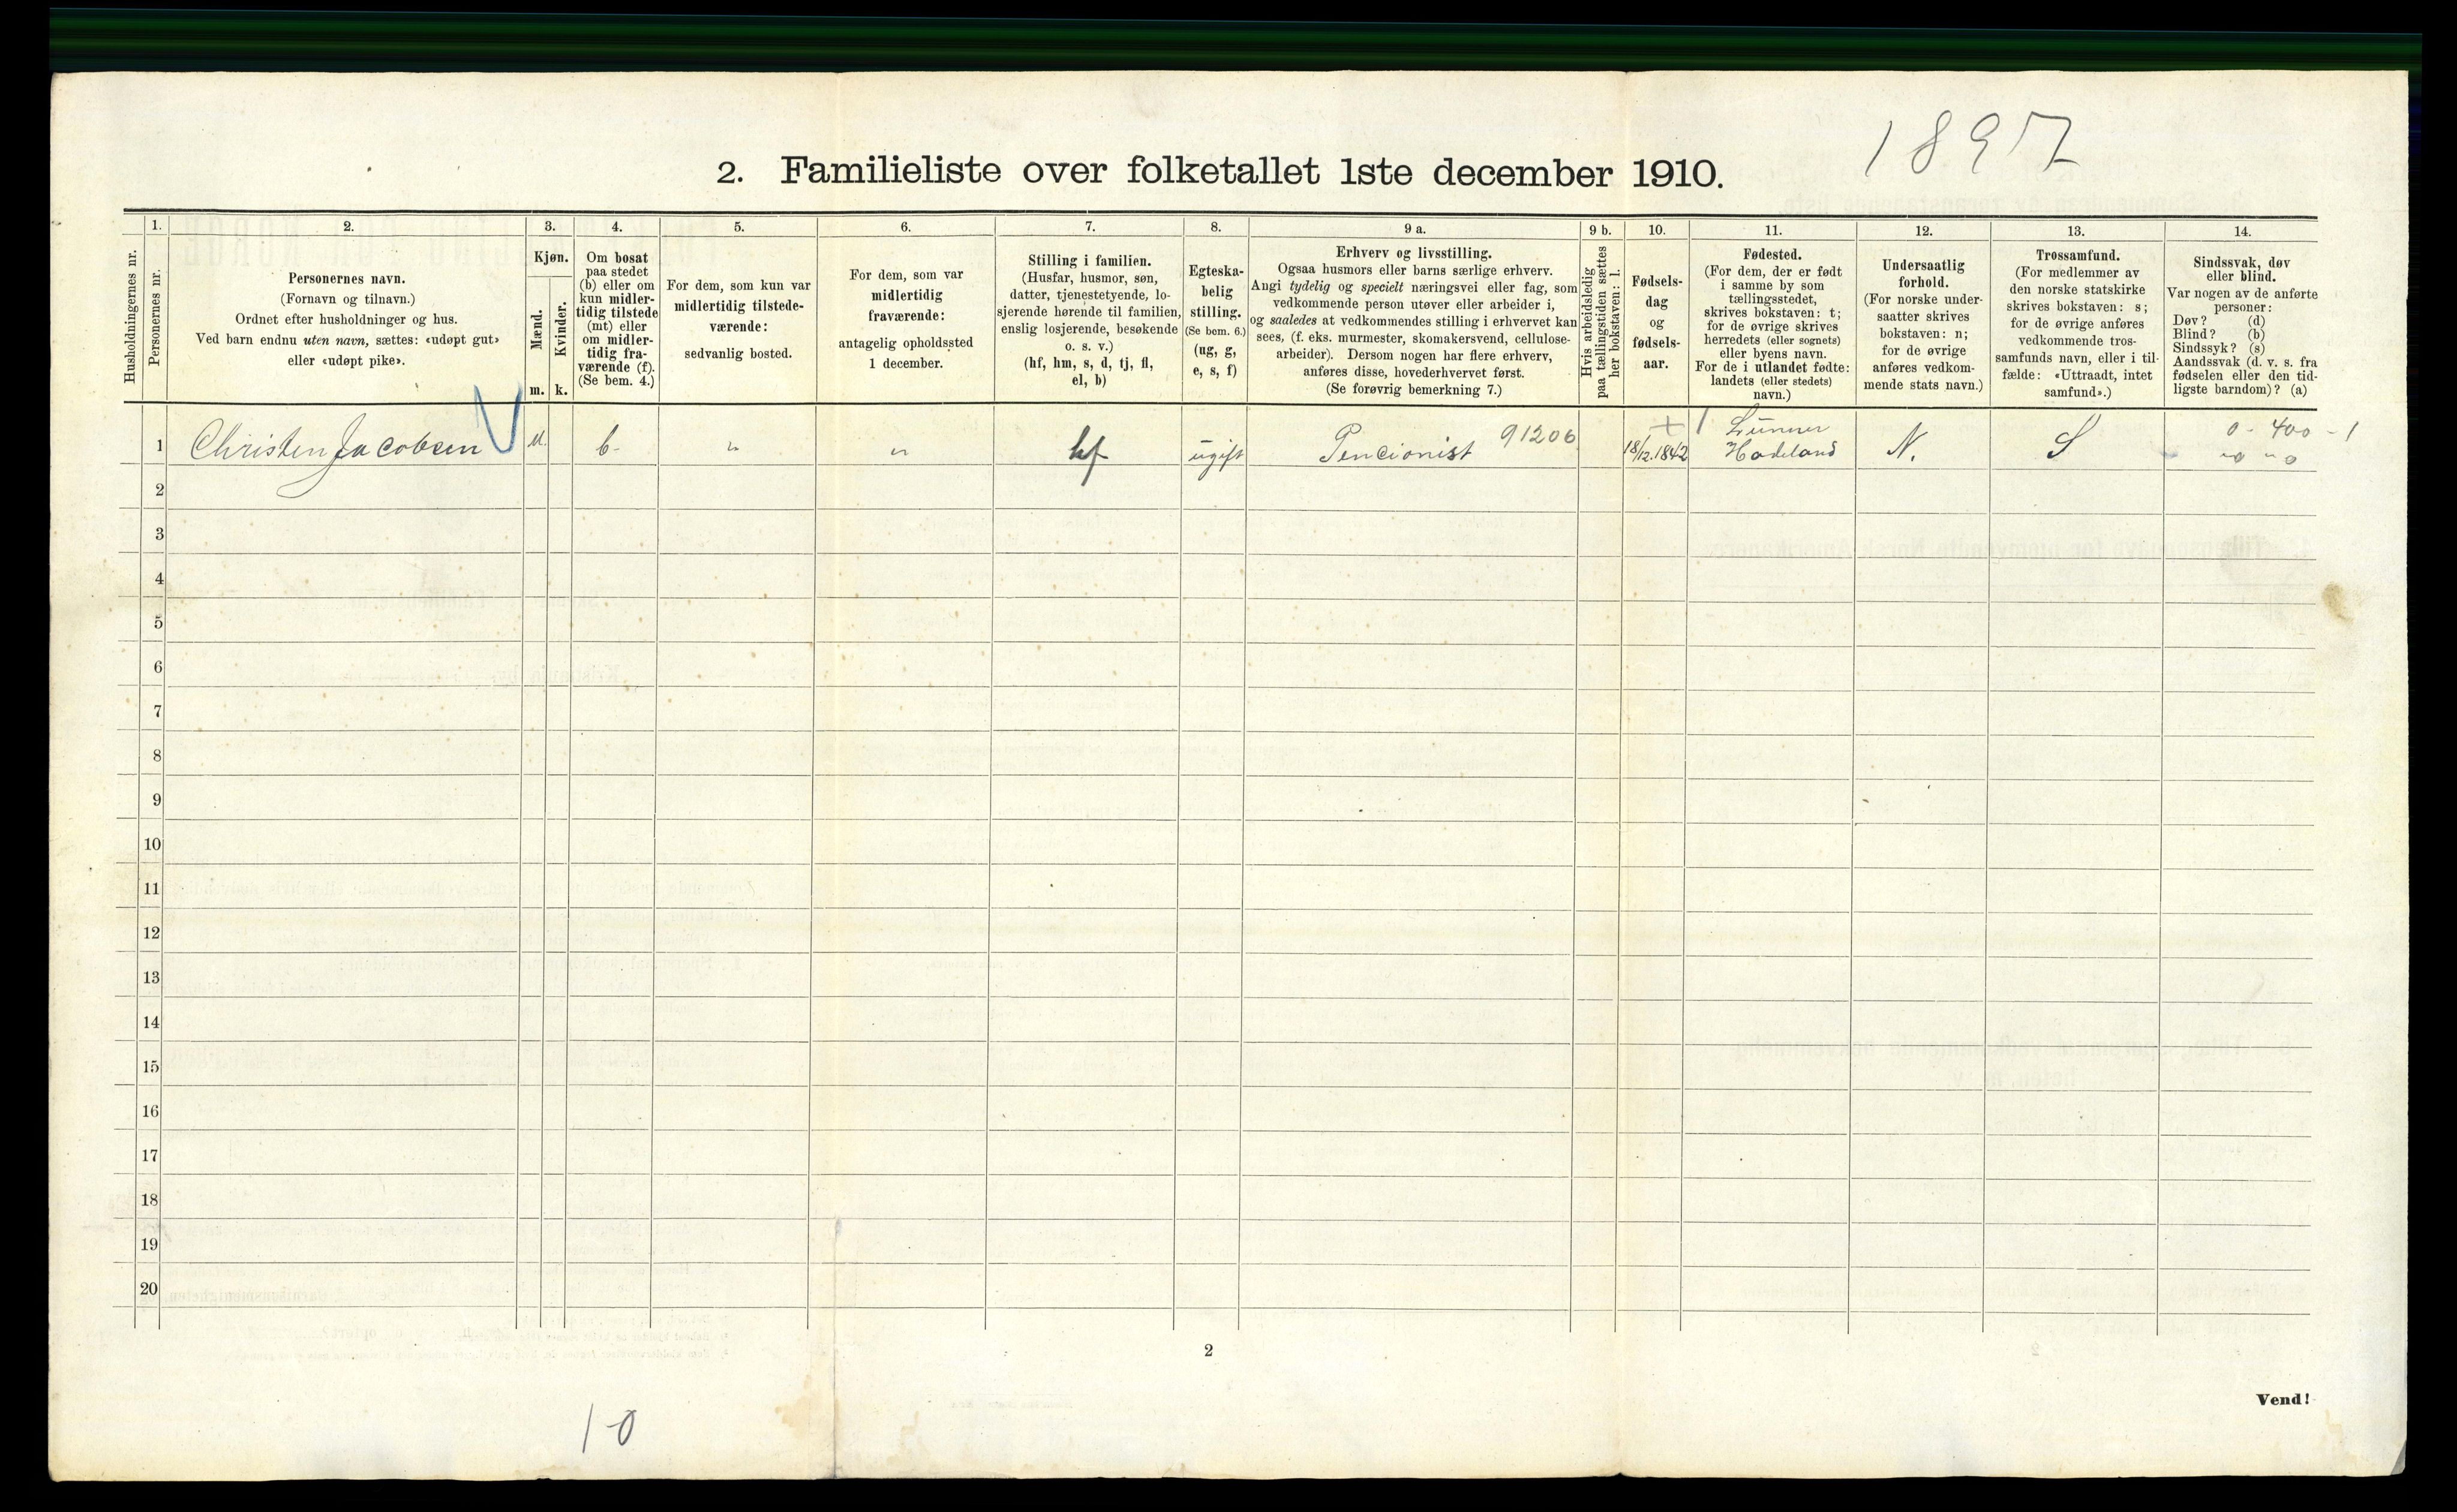 1897
2. Familieliste over folketallet 1ste december 1910.
Husholdningernes nr.
1.
Personernes nr.
2.
Personernes navn.
(Fornavn og tilnavn.)
Ordnet efter husholdninger og hus.
Ved barn endnu uten navn, sættes: «udøpt gut»
eller «udøpt pike».
3.
Kjøn.
Mænd.
m.
Kvinder.
k.
4.
Om bosat
paa stedet
(b) eller om
kun midler-
tidig tilstede
(mt) eller
om midler-
tidig fra-
værende (f).
(Se bem. 4.)
5.
For dem, som kun var
midlertidig tilstede-
værende:
sedvanlig bosted.
6.
For dem, som var
midlertidig
fraværende:
antagelig opholdssted
1 december.
7.
Stilling i familien.
(Husfar, husmor, søn,
datter, tjenestetyende, lo-
sjerende hørende til familien,
enslig losjerende, besøkende
o. s. v.)
(hf, hm, s, d, tj, fl,
el, b)
8.
Egteska-
belig
stilling.
(Se bem. 6.)
(ug, g,
e, s, f)
9 a.
Erhverv og livsstilling.
Ogsaa husmors eller barns særlige erhverv.
Angi tydelig og specielt næringsvei eller fag, som
vedkommende person utøver eller arbeider i,
og saaledes at vedkommendes stilling i erhvervet kan
sees, (f. eks. murmester, skomakersvend, cellulose-
arbeider). Dersom nogen har flere erhverv,
anføres disse, hovederhvervet først.
(Se forøvrig bemerkning 7.)
9 b.
Hvis arbeidsledig
paa tællingstiden sættes
her bokstaven: l.
10.
Fødsels-
dag
og
fødsels-
aar.
11.
Fødested.
(For dem, der er født
i samme by som
tællingsstedet,
skrives bokstaven: t;
for de øvrige skrives
herredets (eller sognets)
eller byens navn.
For de i utlandet fødte:
landets (eller stedets)
navn.)
12.
Undersaatlig
forhold.
(For norske under-
saatter skrives
bokstaven: n;
for de øvrige
anføres vedkom-
mende stats navn.)
13.
Trossamfund.
(For medlemmer av
den norske statskirke
skrives bokstaven: s;
for de øvrige anføres
vedkommende tros-
samfunds navn, eller i til-
fælde: «Uttraadt, intet
samfund».)
14.
Sindssvak, døv
eller blind.
Var nogen av de anførte
personer:
Døv? (d)
Blind? (b)
Sindssyk? (s)
Aandssvak (d. v. s. fra
fødselen eller den tid-
ligste barndom)? (a)
91206 + Lunner 0 - 400 - 1
1 Christen Jacobsen M. b- " " hf ugift Pencionist 18/12.1842 Hadeland N. S
2
3
4
5
6
7
8
9
10
11
12
13
14
15
16
17
18
19
20
2
Vend!
1-0